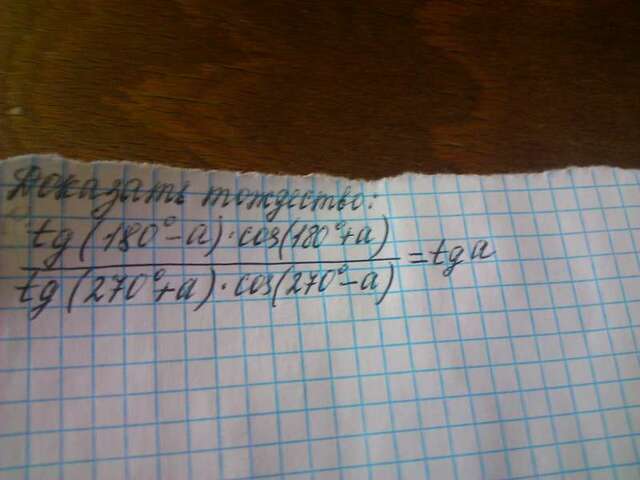 Доказать тождество:
tg(180°-a)·cos(180°+a)
tg(270°+a)·cos(270°-a)
=tga